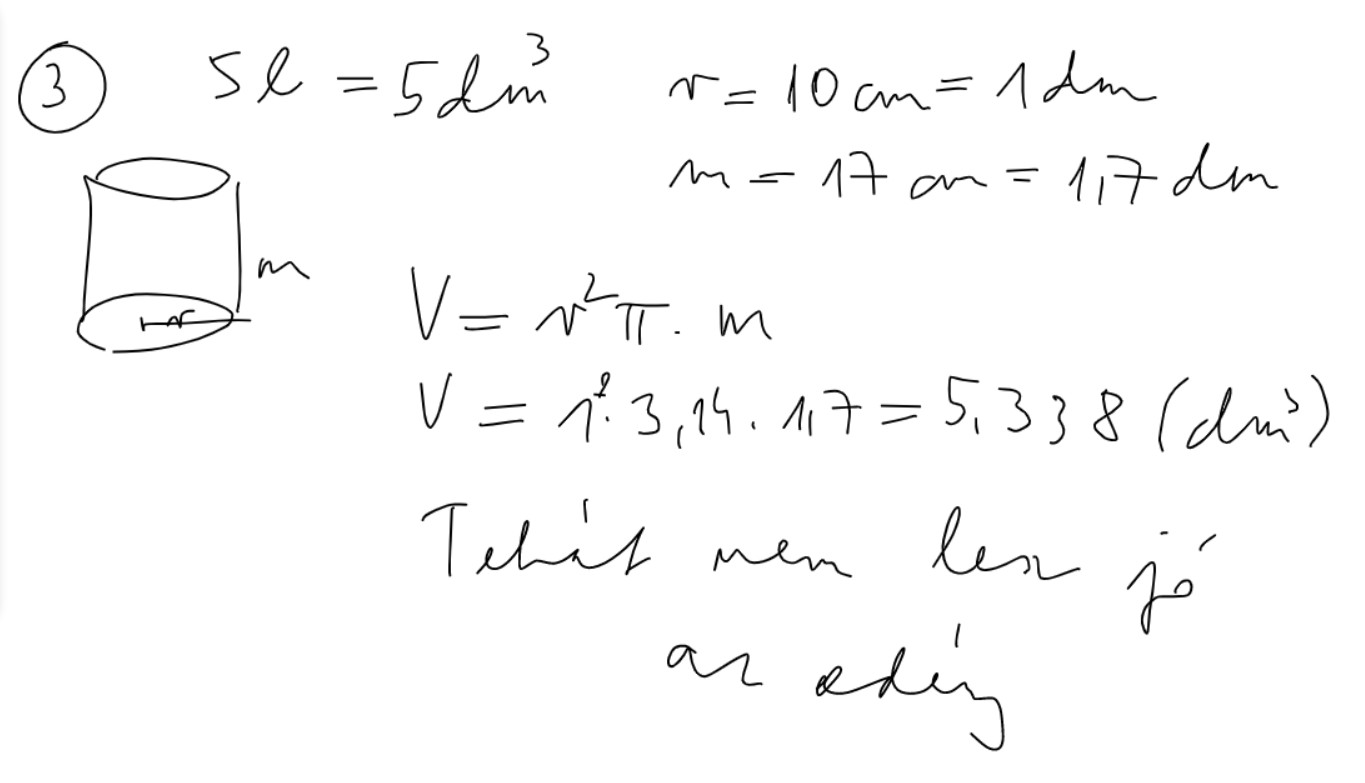 ③ 5l = 5dm³ r = 10 cm = 1 dm
m = 17 cm = 1,7 dm
m
r
V = r²π · m
V = 1² · 3,14 · 1,7 = 5,338 (dm³)
Tehát nem lesz jó
az edény